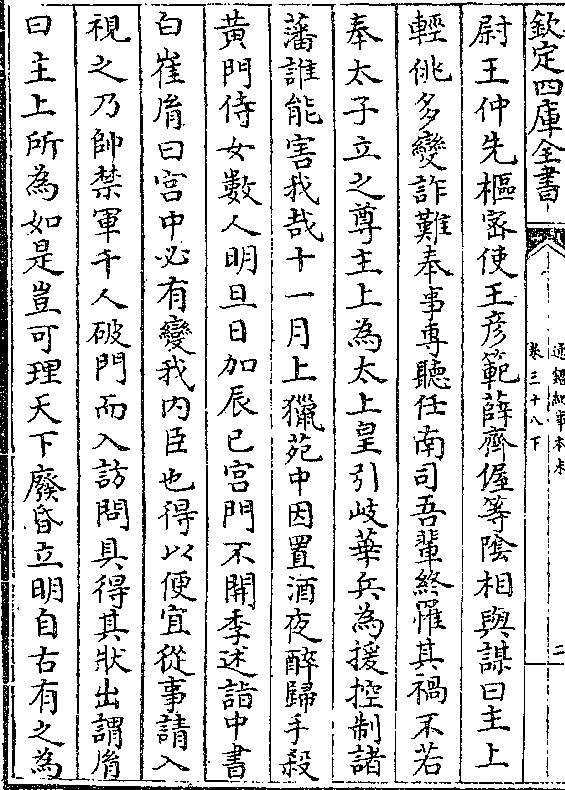 欽定四庫全書
通鑑紀事本末
卷三十八下
二
尉王仲先樞宻使王彦範薛齊偓等隂相與謀曰主上
輕佻多變詐難奉事專聽任南司吾輩終罹其禍不若
奉太子立之尊主上為太上皇引岐華兵為援控制諸
藩誰能害我哉十一月上獵苑中因置酒夜醉歸手殺
黄門侍女數人明旦日加辰巳宫門不開季述詣中書
白崔𦙍曰宫中必有變我内臣也得以便宜從事請入
視之乃帥禁軍千人破門而入訪問具得其狀出謂𦙍
曰主上所為如是豈可理天下廢昏立明自古有之為